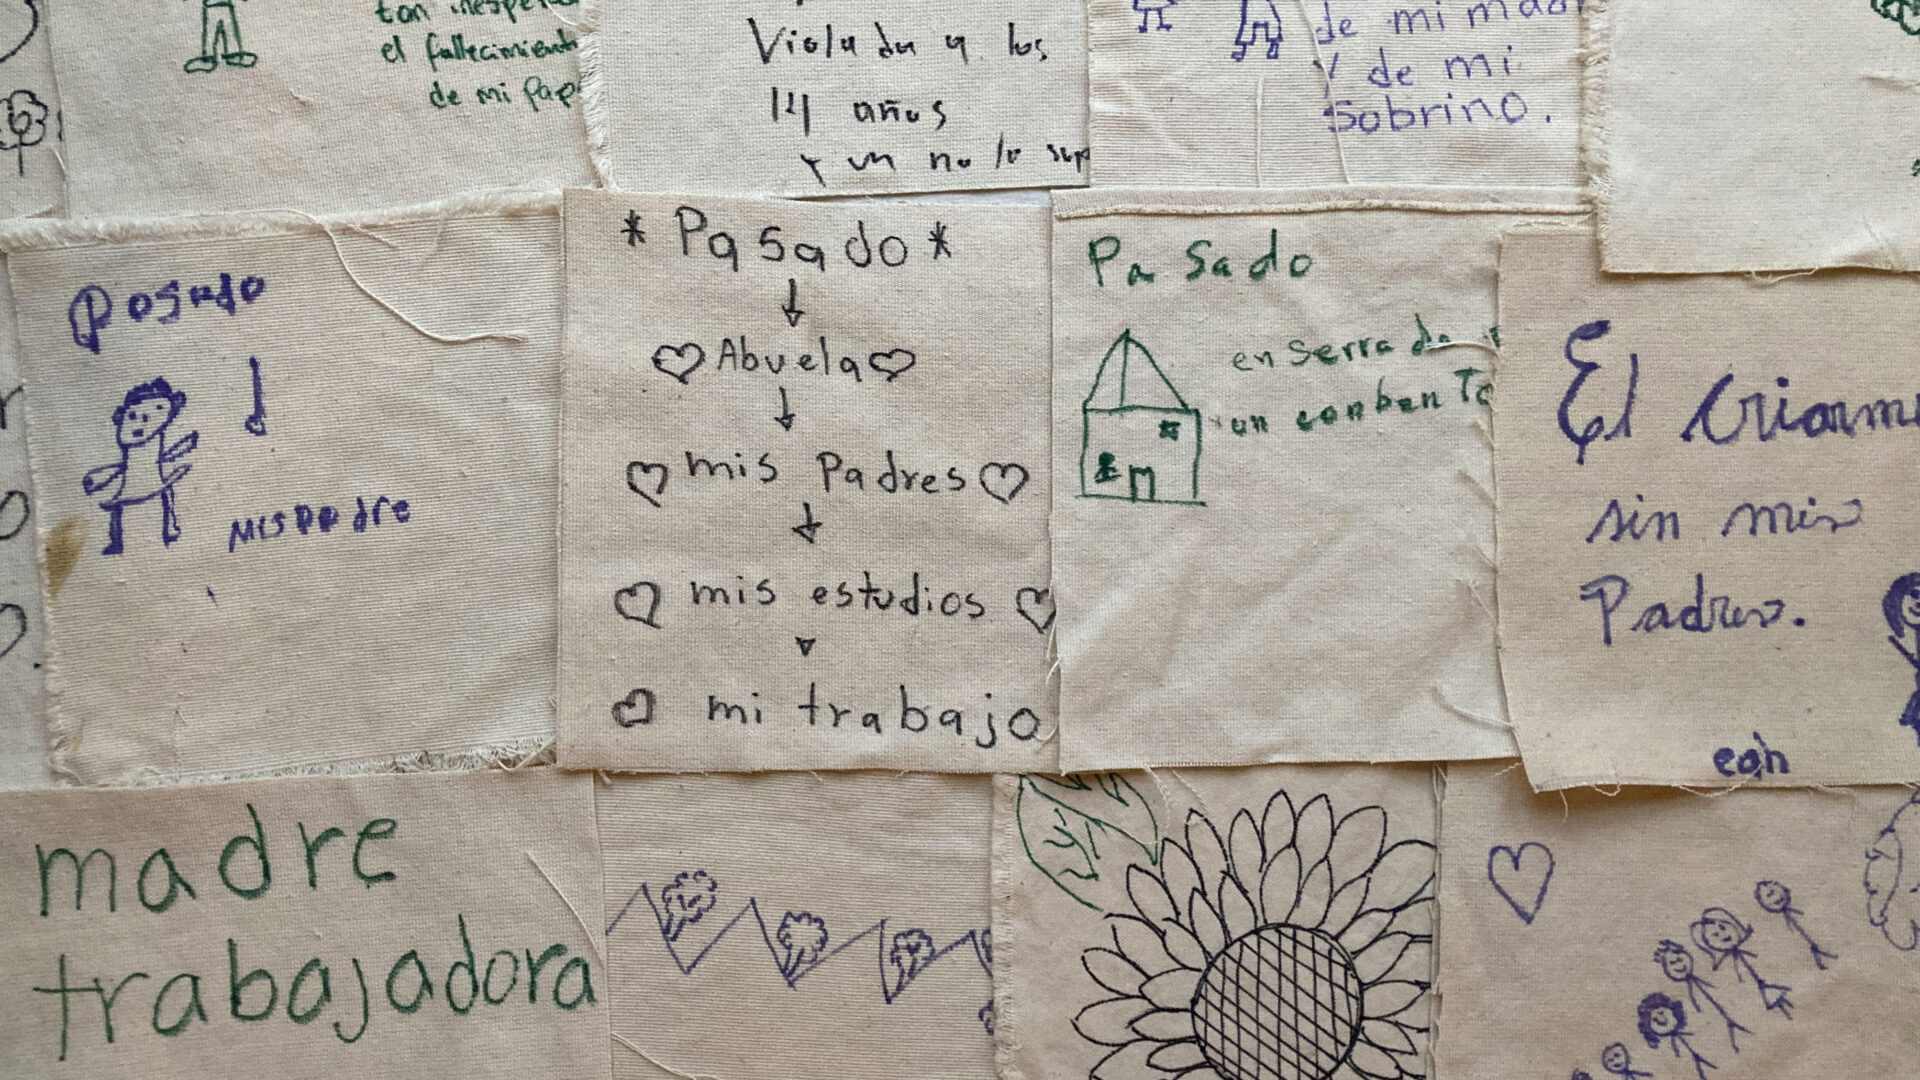 el fallecimiento
de mi pap
Violada a los
14 años
y un no lo sup
de mi mad
y de mi
Sobrino.
Posado
MIS PADRE
* Pasado *
Abuela
mis Padres
mis estudios
mi trabajo
Pa Sado
en serra do
un conbento
El criarme
sin mis
Padres.
madre
trabajadora